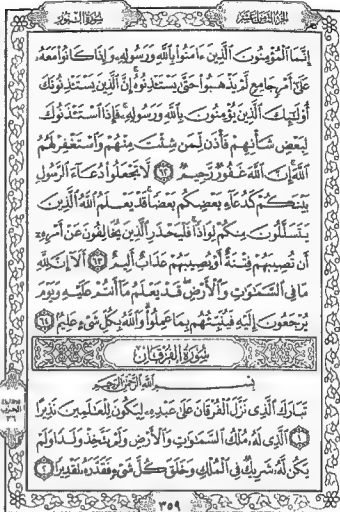 الجزء الثامن عشر
سورة النور
إِنَّمَا الْمُؤْمِنُونَ الَّذِينَ ءَامَنُوا بِاللَّهِ وَرَسُولِهِ وَإِذَا كَانُوا مَعَهُ
عَلَىٰ أَمْرٍ جَامِعٍ لَّمْ يَذْهَبُوا حَتَّىٰ يَسْتَـْٔذِنُوهُ إِنَّ الَّذِينَ يَسْتَـْٔذِنُونَكَ
أُولَٰئِكَ الَّذِينَ يُؤْمِنُونَ بِاللَّهِ وَرَسُولِهِ فَإِذَا اسْتَـْٔذَنُوكَ
لِبَعْضِ شَأْنِهِمْ فَأْذَن لِّمَن شِئْتَ مِنْهُمْ وَاسْتَغْفِرْ لَهُمُ
اللَّهَ إِنَّ اللَّهَ غَفُورٌ رَّحِيمٌ ٦٢ لَّا تَجْعَلُوا دُعَاءَ الرَّسُولِ
بَيْنَكُمْ كَدُعَاءِ بَعْضِكُم بَعْضًا قَدْ يَعْلَمُ اللَّهُ الَّذِينَ
يَتَسَلَّلُونَ مِنكُمْ لِوَاذًا فَلْيَحْذَرِ الَّذِينَ يُخَالِفُونَ عَنْ أَمْرِهِ
أَن تُصِيبَهُمْ فِتْنَةٌ أَوْ يُصِيبَهُمْ عَذَابٌ أَلِيمٌ ٦٣ أَلَا إِنَّ لِلَّهِ
مَا فِي السَّمَٰوَٰتِ وَالْأَرْضِ قَدْ يَعْلَمُ مَا أَنتُمْ عَلَيْهِ وَيَوْمَ
يُرْجَعُونَ إِلَيْهِ فَيُنَبِّئُهُم بِمَا عَمِلُوا وَاللَّهُ بِكُلِّ شَيْءٍ عَلِيمٌ ٦٤
سورة الفرقان
بِسْمِ اللَّهِ الرَّحْمَٰنِ الرَّحِيمِ
تَبَارَكَ الَّذِي نَزَّلَ الْفُرْقَانَ عَلَىٰ عَبْدِهِ لِيَكُونَ لِلْعَٰلَمِينَ نَذِيرًا
١ الَّذِي لَهُ مُلْكُ السَّمَٰوَٰتِ وَالْأَرْضِ وَلَمْ يَتَّخِذْ وَلَدًا وَلَمْ
يَكُن لَّهُ شَرِيكٌ فِي الْمُلْكِ وَخَلَقَ كُلَّ شَيْءٍ فَقَدَّرَهُ تَقْدِيرًا ٢
الحزب
٣٦
٣٥٩